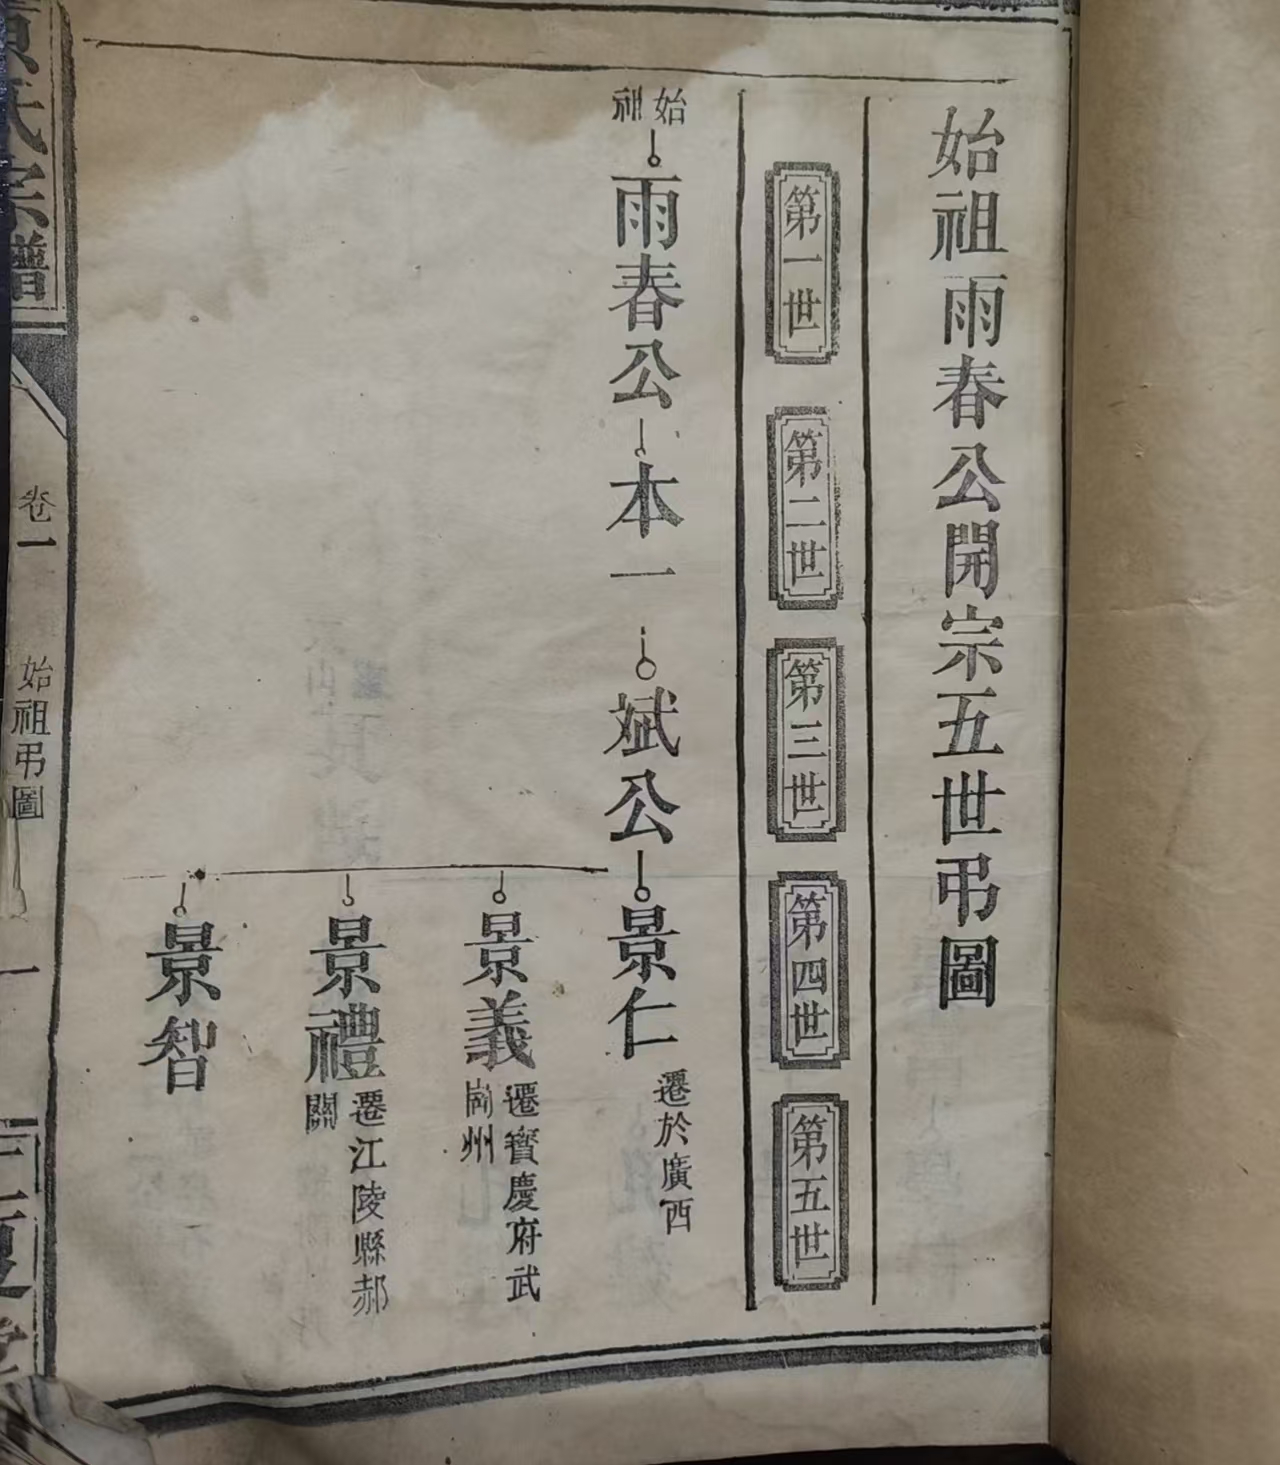 始祖雨春公開宗五世弔圖
第一世
第二世
第三世
第四世
第五世
始祖
雨春公
本一
斌公
景仁
遷於廣西
景義
遷寶慶府武
岡州
景禮
遷江陵縣郝
關
景智
黃氏宗譜
卷一
始祖弔圖
一